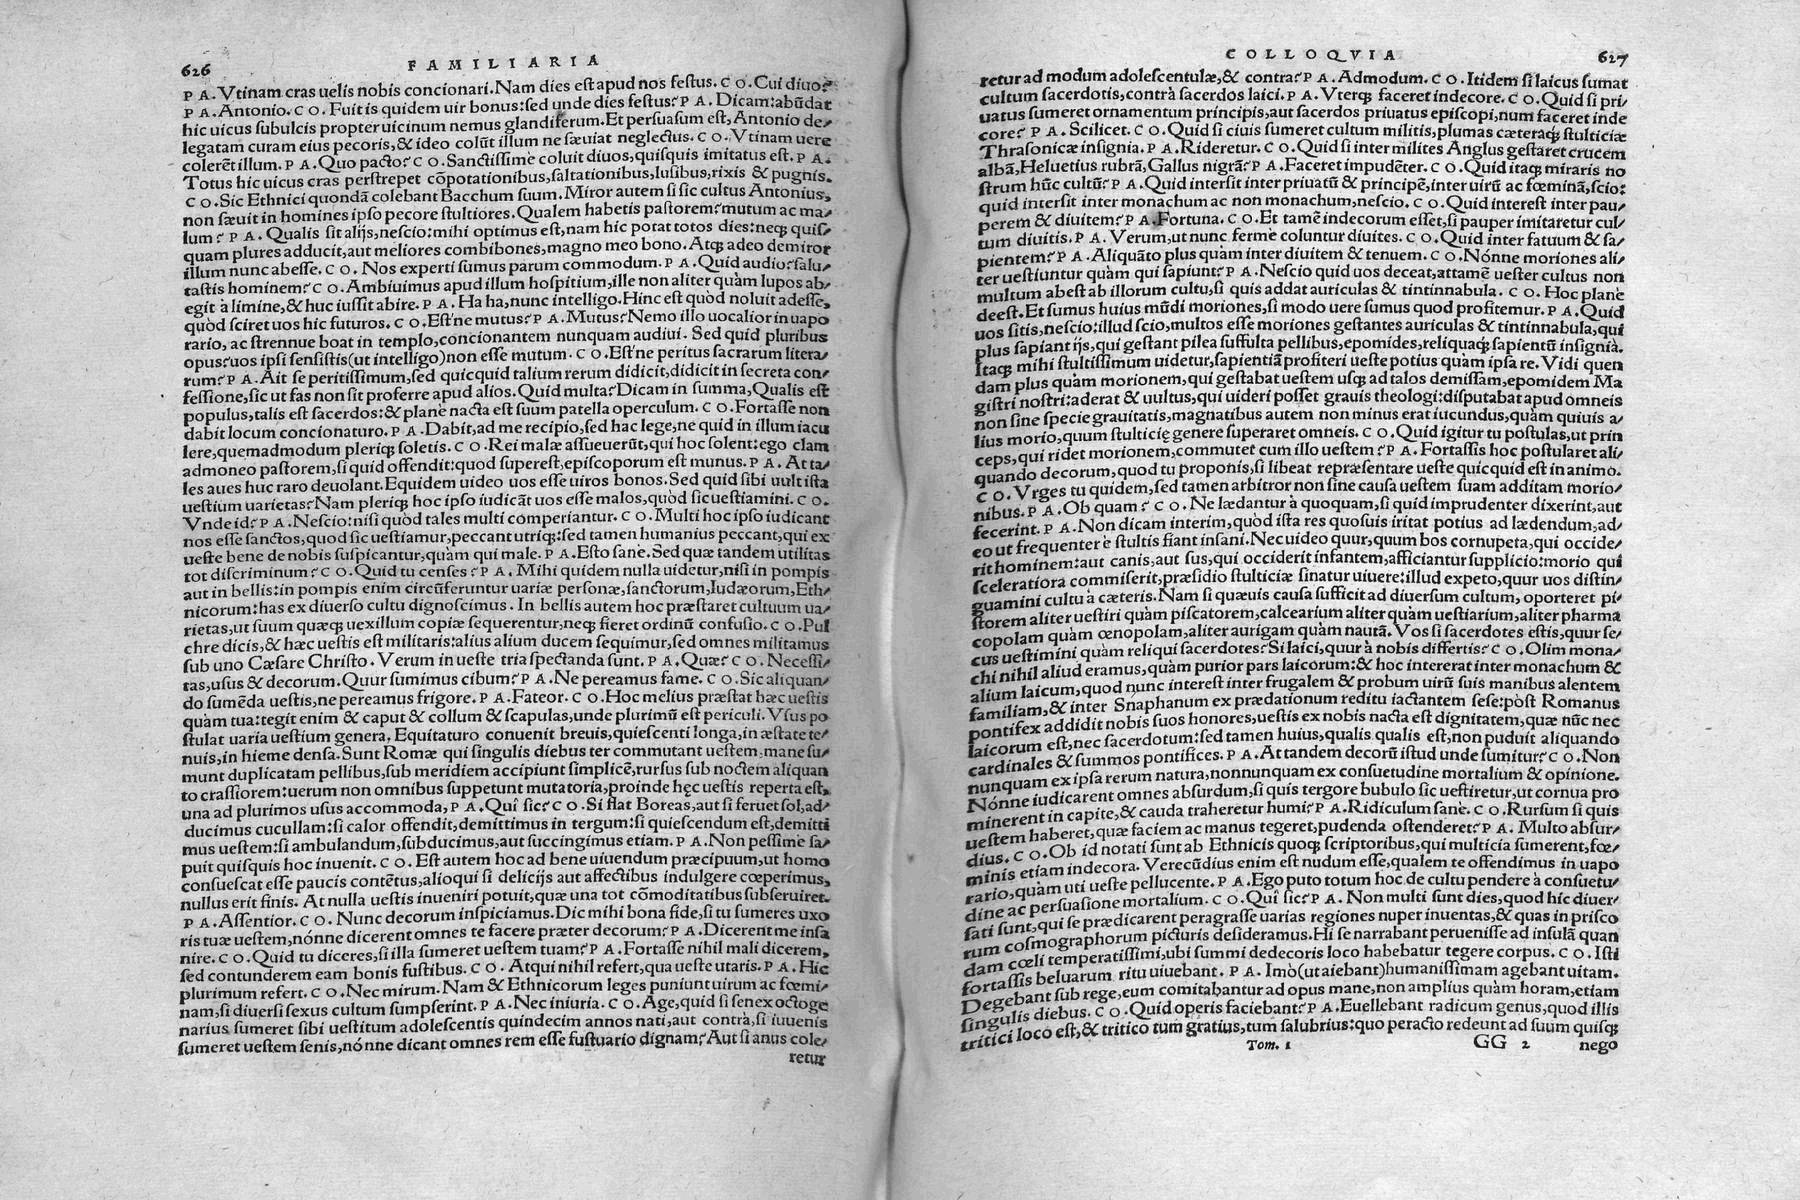 626 FAMILIARIA
P A. Vtinam cras uelis nobis concionari. Nam dies est apud nos festus. C O. Cui diuo?
P A. Antonio. C O. Fuit is quidem uir bonus: sed unde dies festus? P A. Dicam: abũdat
hic uicus subulcis propter uicinum nemus glandiferum. Et persuasum est, Antonio de-
legatam curam eius pecoris, & ideo colũt illum ne sæuiat neglectus. C O. Vtinam uere
colerẽt illum. P A. Quo pacto? C O. Sanctissime coluit diuos, quisquis imitatus est. P A.
Totus hic uicus cras perstrepet cõpotationibus, saltationibus, lusibus, rixis & pugnis.
C O. Sic Ethnici quondã colebant Bacchum suum. Miror autem si sic cultus Antonius,
non sæuit in homines ipso pecore stultiores. Qualem habetis pastorem? mutum ac ma-
lum? P A. Qualis sit alijs, nescio: mihi optimus est, nam hic potat totos dies: neq; quis-
quam plures adducit, aut meliores combibones, magno meo bono. Atq; adeo demiror
illum nunc abesse. C O. Nos experti sumus parum commodum. P A. Quid audio? salu-
tastis hominem? C O. Ambiuimus apud illum hospitium, ille non aliter quàm lupos ab-
egit à limine, & huc iussit abire. P A. Ha ha, nunc intelligo. Hinc est quòd noluit adesse,
quòd sciret uos hic futuros. C O. Est'ne mutus? P A. Mutus? Nemo illo uocalior in uapo
rario, ac strennue boat in templo, concionantem nunquam audiui. Sed quid pluribus
opus? uos ipsi sensistis (ut intelligo) non esse mutum. C O. Est'ne peritus sacrarum litera-
rum? P A. Ait se peritissimum, sed quicquid talium rerum didicit, didicit in secreta con-
fessione, sic ut fas non sit proferre apud alios. Quid multa? Dicam in summa, Qualis est
populus, talis est sacerdos: & planè nacta est suum patella operculum. C O. Fortasse non
dabit locum concionaturo. P A. Dabit, ad me recipio, sed hac lege, ne quid in illum iacu
lere, quemadmodum pleriq; soletis. C O. Rei malæ assueuerũt, qui hoc solent: ego clam
admoneo pastorem, si quid offendit: quod superest, episcoporum est munus. P A. At ta-
les aues huc raro deuolant. Equidem uideo uos esse uiros bonos. Sed quid sibi uult ista
uestium uarietas? Nam pleriq; hoc ipso iudicãt uos esse malos, quòd sic uestiamini. C O.
Vnde id? P A. Nescio: nisi quòd tales multi comperiantur. C O. Multi hoc ipso iudicant
nos esse sanctos, quod sic uestiamur, peccant utriq;: sed tamen humanius peccant, qui ex
ueste bene de nobis suspicantur, quàm qui male. P A. Esto sanè. Sed quæ tandem utilitas
tot discriminum? C O. Quid tu censes? P A. Mihi quidem nulla uidetur, nisi in pompis
aut in bellis: in pompis enim circũferuntur uariæ personæ, sanctorum, Iudæorum, Eth-
nicorum: has ex diuerso cultu dignoscimus. In bellis autem hoc præstaret cultuum ua-
rietas, ut suum quæq; uexillum copiæ sequerentur, neq; fieret ordinũ confusio. C O. Pul
chre dicis, & hæc uestis est militaris: alius alium ducem sequimur, sed omnes militamus
sub uno Cæsare Christo. Verum in ueste tria spectanda sunt. P A. Quæ? C O. Necessi-
tas, usus & decorum. Quur sumimus cibum? P A. Ne pereamus fame. C O. Sic aliquan-
do sumẽda uestis, ne pereamus frigore. P A. Fateor. C O. Hoc melius præstat hæc uestis
quàm tua: tegit enim & caput & collum & scapulas, unde plurimũ est periculi. Vsus po
stulat uaria uestium genera. Equitaturo conuenit breuis, quiescenti longa, in æstate te-
nuis, in hieme densa. Sunt Romæ qui singulis diebus ter commutant uestem, mane su-
munt duplicatam pellibus, sub meridiem accipiunt simplicẽ, rursus sub noctem aliquan
to crassiorem: uerum non omnibus suppetunt mutatoria, proinde hęc uestis reperta est,
una ad plurimos usus accommoda, P A. Quî sic? C O. Si flat Boreas, aut si feruet sol, ad-
ducimus cucullam: si calor offendit, demittimus in tergum: si quiescendum est, demitti
mus uestem: si ambulandum, subducimus, aut succingimus etiam. P A. Non pessime sa-
puit quisquis hoc inuenit. C O. Est autem hoc ad bene uiuendum præcipuum, ut homo
consuescat esse paucis contẽtus, alioqui si delicijs aut affectibus indulgere cœperimus,
nullus erit finis. At nulla uestis inueniri potuit, quæ una tot cõmoditatibus subseruiret.
P A. Assentior. C O. Nunc decorum inspiciamus. Dic mihi bona fide, si tu sumeres uxo
ris tuæ uestem, nónne dicerent omnes te facere præter decorum? P A. Dicerent me insa
nire. C O. Quid tu diceres, si illa sumeret uestem tuam? P A. Fortasse nihil mali dicerem,
sed contunderem eam bonis fustibus. C O. Atqui nihil refert, qua ueste utaris. P A. Hic
plurimum refert. C O. Nec mirum. Nam & Ethnicorum leges puniunt uirum ac fœmi-
nam, si diuersi sexus cultum sumpserint. P A. Nec iniuria. C O. Age, quid si senex octoge
narius sumeret sibi uestitum adolescentis quindecim annos nati, aut contrà, si iuuenis
sumeret uestem senis, nónne dicant omnes rem esse fustuario dignam? Aut si anus cole-
retur
COLLOQVIA 627
retur ad modum adolescentulæ, & contra? P A. Admodum. C O. Itidem si laicus sumat
cultum sacerdotis, contrà sacerdos laici. P A. Vterq; faceret indecore. C O. Quid si pri-
uatus sumeret ornamentum principis, aut sacerdos priuatus episcopi, num faceret inde
core? P A. Scilicet. C O. Quid si ciuis sumeret cultum militis, plumas cæteraq; stulticiæ
Thrasonicæ insignia. P A. Rideretur. C O. Quid si inter milites Anglus gestaret crucem
albã, Heluetius rubrã, Gallus nigrã? P A. Faceret impudẽter. C O. Quid itaq; miraris no
strum hũc cultũ? P A. Quid intersit inter priuatũ & principẽ, inter uirũ ac fœminã, scio:
quid intersit inter monachum ac non monachum, nescio. C O. Quid interest inter pau-
perem & diuitem? P A. Fortuna. C O. Et tamẽ indecorum esset, si pauper imitaretur cul-
tum diuitis. P A. Verum, ut nunc fermè coluntur diuites. C O. Quid inter fatuum & sa-
pientem? P A. Aliquãto plus quàm inter diuitem & tenuem. C O. Nónne moriones ali-
ter uestiuntur quàm qui sapiunt? P A. Nescio quid uos deceat, attamẽ uester cultus non
multum abest ab illorum cultu, si quis addat auriculas & tintinnabula. C O. Hoc planè
deest. Et sumus huius mũdi moriones, si modo uere sumus quod profitemur. P A. Quid
uos sitis, nescio: illud scio, multos esse moriones gestantes auriculas & tintinnabula, qui
plus sapiant ijs, qui gestant pilea suffulta pellibus, epomides, reliquaq; sapientũ insignia.
Itaq; mihi stultissimum uidetur, sapientiã profiteri ueste potius quàm ipsa re. Vidi quen
dam plus quàm morionem, qui gestabat uestem usq; ad talos demissam, epomidem Ma
gistri nostri: aderat & uultus, qui uideri posset grauis theologi: disputabat apud omneis
non sine specie grauitatis, magnatibus autem non minus erat iucundus, quàm quiuis a-
lius morio, quum stulticię genere superaret omneis. C O. Quid igitur tu postulas, ut prin
ceps, qui ridet morionem, commutet cum illo uestem? P A. Fortassis hoc postularet ali-
quando decorum, quod tu proponis, si libeat repræsentare ueste quicquid est in animo.
C O. Vrges tu quidem, sed tamen arbitror non sine causa uestem suam additam morio-
nibus. P A. Ob quam? C O. Ne lædantur à quoquam, si quid imprudenter dixerint, aut
fecerint. P A. Non dicam interim, quòd ista res quosuis iritat potius ad lædendum, ad-
eo ut frequenter è stultis fiant insani. Nec uideo quur, quum bos cornupeta, qui occide-
rit hominem: aut canis, aut sus, qui occiderit infantem, afficiantur supplicio: morio qui
sceleratiora commiserit, præsidio stulticiæ sinatur uiuere: illud expeto, quur uos distin-
guamini cultu à cæteris. Nam si quæuis causa sufficit ad diuersum cultum, oporteret pi-
storem aliter uestiri quàm piscatorem, calcearium aliter quàm uestiarium, aliter pharma
copolam quàm œnopolam, aliter aurigam quàm nautã. Vos si sacerdotes estis, quur se-
cus uestimini quàm reliqui sacerdotes? Si laici, quur à nobis differtis? C O. Olim mona-
chi nihil aliud eramus, quàm purior pars laicorum: & hoc intererat inter monachum &
alium laicum, quod nunc interest inter frugalem & probum uirũ suis manibus alentem
familiam, & inter Snaphanum ex prædationum reditu iactantem sese: pòst Romanus
pontifex addidit nobis suos honores, uestis ex nobis nacta est dignitatem, quæ nũc nec
laicorum est, nec sacerdotum: sed tamen huius, qualis qualis est, non puduit aliquando
cardinales & summos pontifices. P A. At tandem decorũ istud unde sumitur? C O. Non
nunquam ex ipsa rerum natura, nonnunquam ex consuetudine mortalium & opinione.
Nónne iudicarent omnes absurdum, si quis tergore bubulo sic uestiretur, ut cornua pro
minerent in capite, & cauda traheretur humi? P A. Ridiculum sanè. C O. Rursum si quis
uestem haberet, quæ faciem ac manus tegeret, pudenda ostenderet? P A. Multo absur-
dius. C O. Ob id notati sunt ab Ethnicis quoq; scriptoribus, qui multicia sumerent, fœ-
minis etiam indecora. Verecũdius enim est nudum esse, qualem te offendimus in uapo
rario, quàm uti ueste pellucente. P A. Ego puto totum hoc de cultu pendere à consuetu-
dine ac persuasione mortalium. C O. Quî sic? P A. Non multi sunt dies, quod hic diuer-
sati sunt, qui se prædicarent peragrasse uarias regiones nuper inuentas, & quas in prisco
rum cosmographorum picturis desideramus. Hi se narrabant peruenisse ad insulã quan
dam cœli temperatissimi, ubi summi dedecoris loco habebatur tegere corpus. C O. Isti
fortassis beluarum ritu uiuebant. P A. Imò (ut aiebant) humanissimam agebant uitam.
Degebant sub rege, eum comitabantur ad opus mane, non amplius quàm horam, etiam
singulis diebus. C O. Quid operis faciebant? P A. Euellebant radicum genus, quod illis
tritici loco est, & tritico tum gratius, tum salubrius: quo peracto redeunt ad suum quisq;
Tom. 1 GG 2 nego